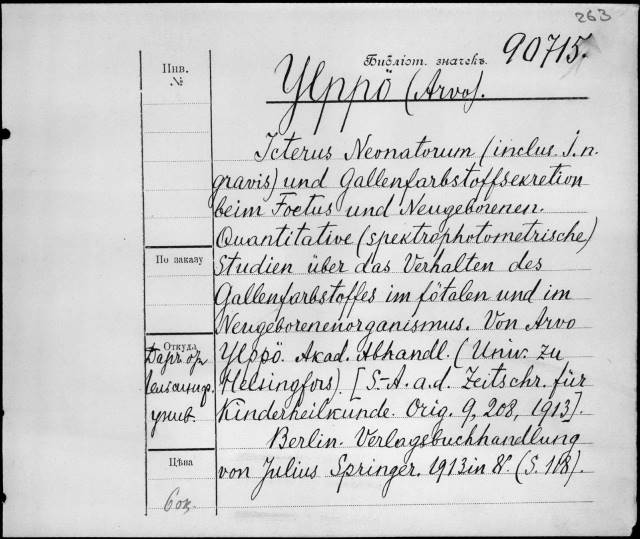 263
Библіот. значекъ. 90715.
Инв.
№
Ylppö (Arvo).
Icterus Neonatorum (inclus. J. n.
gravis) und Gallenfarbstoffsekretion
beim Foetus und Neugeborenen.
Quantitative (spektrophotometrische)
По заказу
Studien über das Verhalten des
Gallenfarbstoffes im fötalen und im
Neugeborenenorganismus. Von Arvo
Откуда
Ylppö. Akad. Abhandl. (Univ. zu
Helsingfors). [S.-A. a. d. Zeitschr. für
унив.
Kinderheilkunde. Orig. 9, 208, 1913].
Berlin. Verlagsbuchhandlung
Цѣна
von Julius Springer. 1913 in 8°. (S. 118).